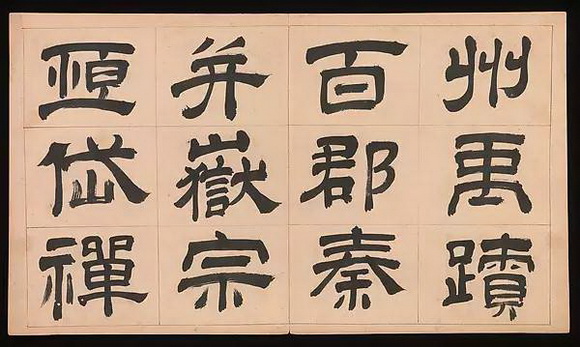 州禹蹟
百郡秦
并嶽宗
恒岱禪